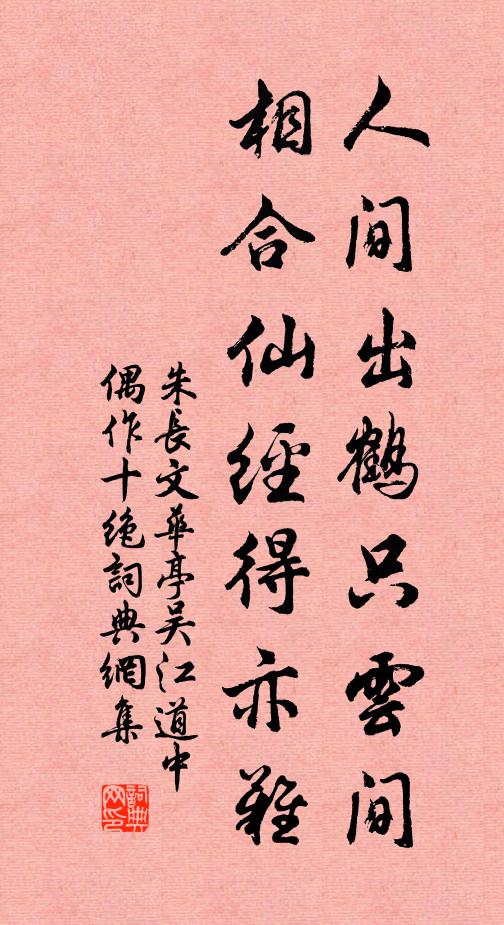 人間出鶴只雲間
相合仙經得亦難
朱長文華亭吴江道中
偶作十絶詞典網集
詞典網印